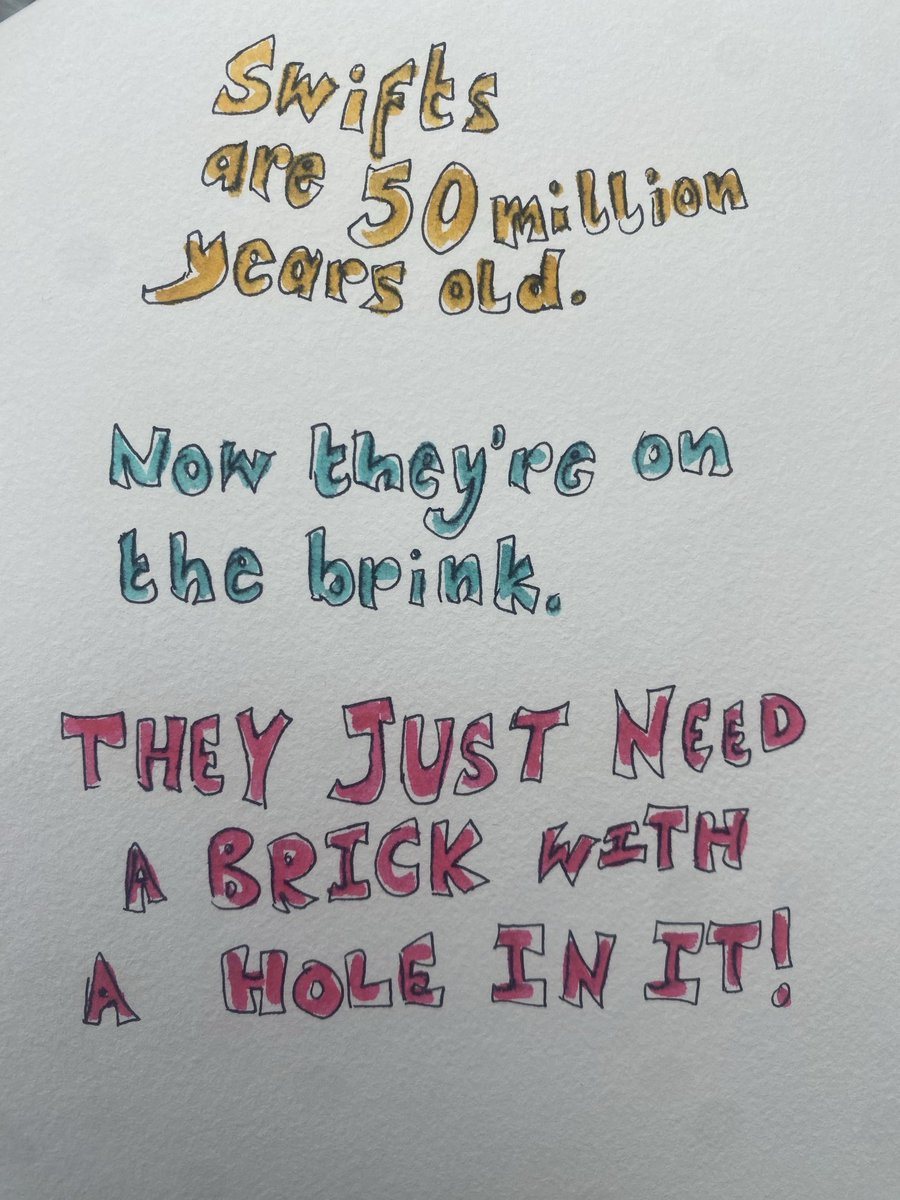 Swifts
are 50 million
years old.
Now they're on
the brink.
THEY JUST NEED
A BRICK WITH
A HOLE IN IT!